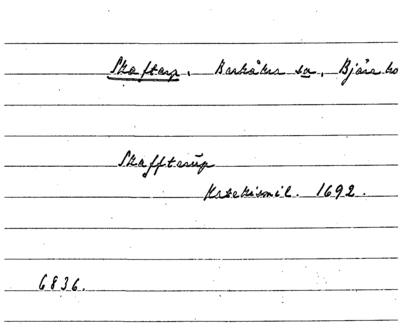 Skaftarp. Barkåkra sn, Bjäre hd
Skafftarüp
Katekismil. 1692.
6836.